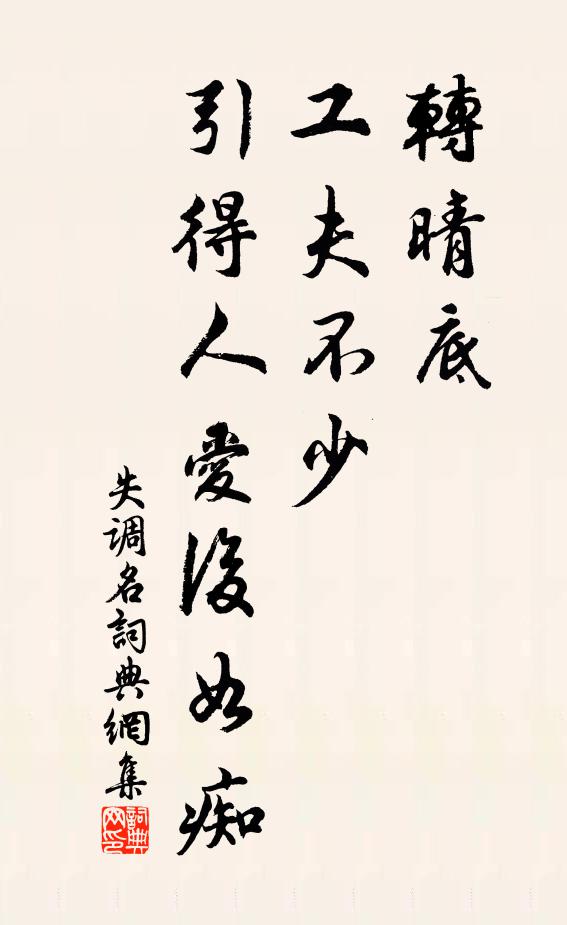 轉晴底
工夫不少
引得人愛後如痴
失调名詞典網集
詞典网印